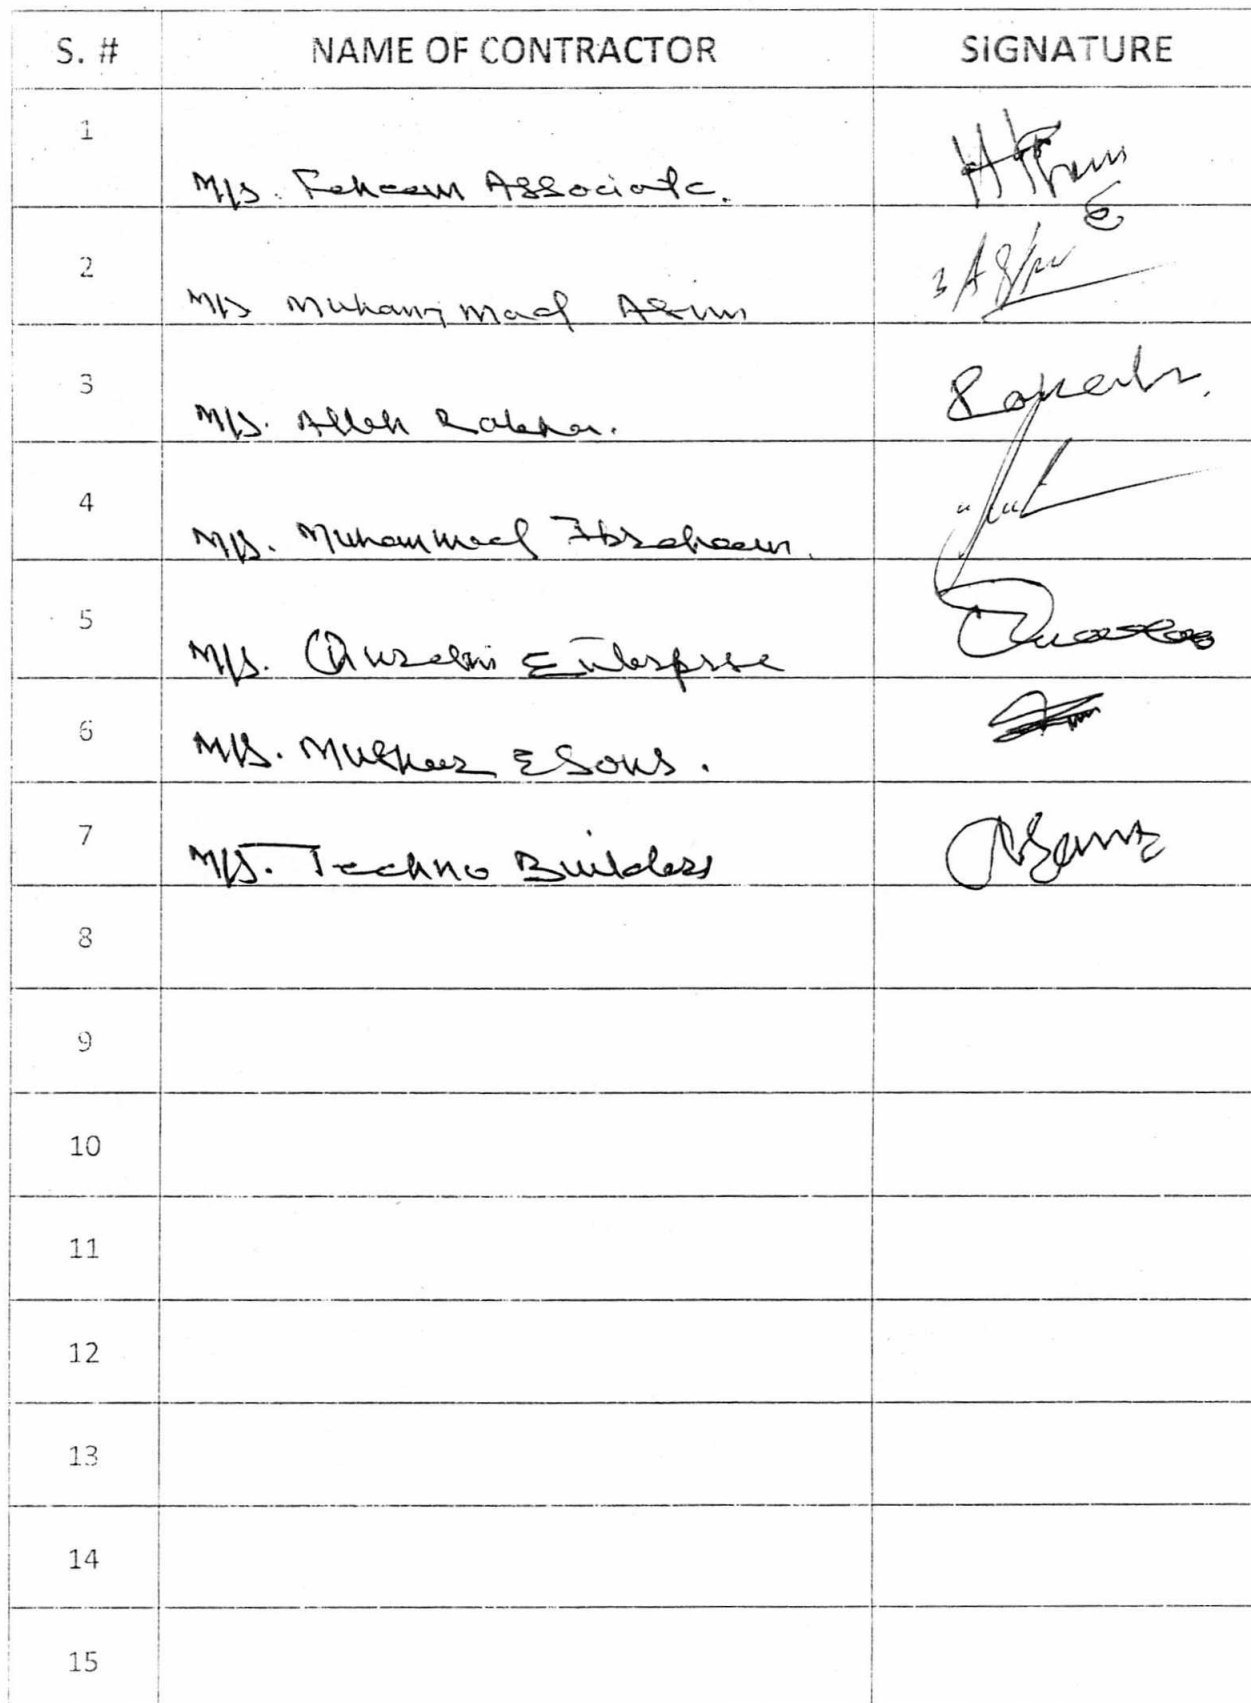 S. # NAME OF CONTRACTOR SIGNATURE
1 M/s. Faheem Associate.
2 M/s Muhammad Asim
3 M/s. Allah Rakha.
4 M/s. Muhammad Ibraheem.
5 M/s. Qureshi Enterprise
6 M/s. & Sons.
7 M/s. Techno Builders
8
9
10
11
12
13
14
15